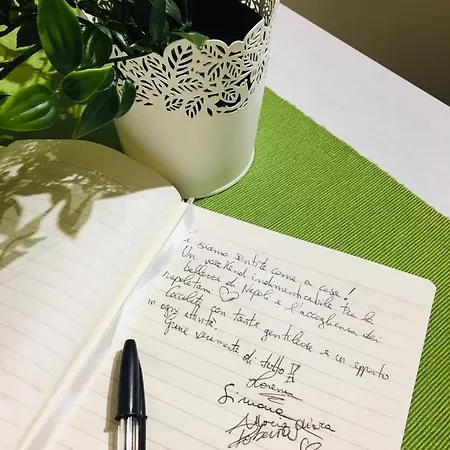 Ci siamo sentite come a casa!
Un weekend indimenticabile tra la
bellezza di Napoli e l'accoglienza dei
napoletani ♡
Coccolate con tanta gentilezza e un supporto
in ogni attività.
Grazie veramente di tutto!!
Lorena
Simona
Maria Chiara
Roberta ♡